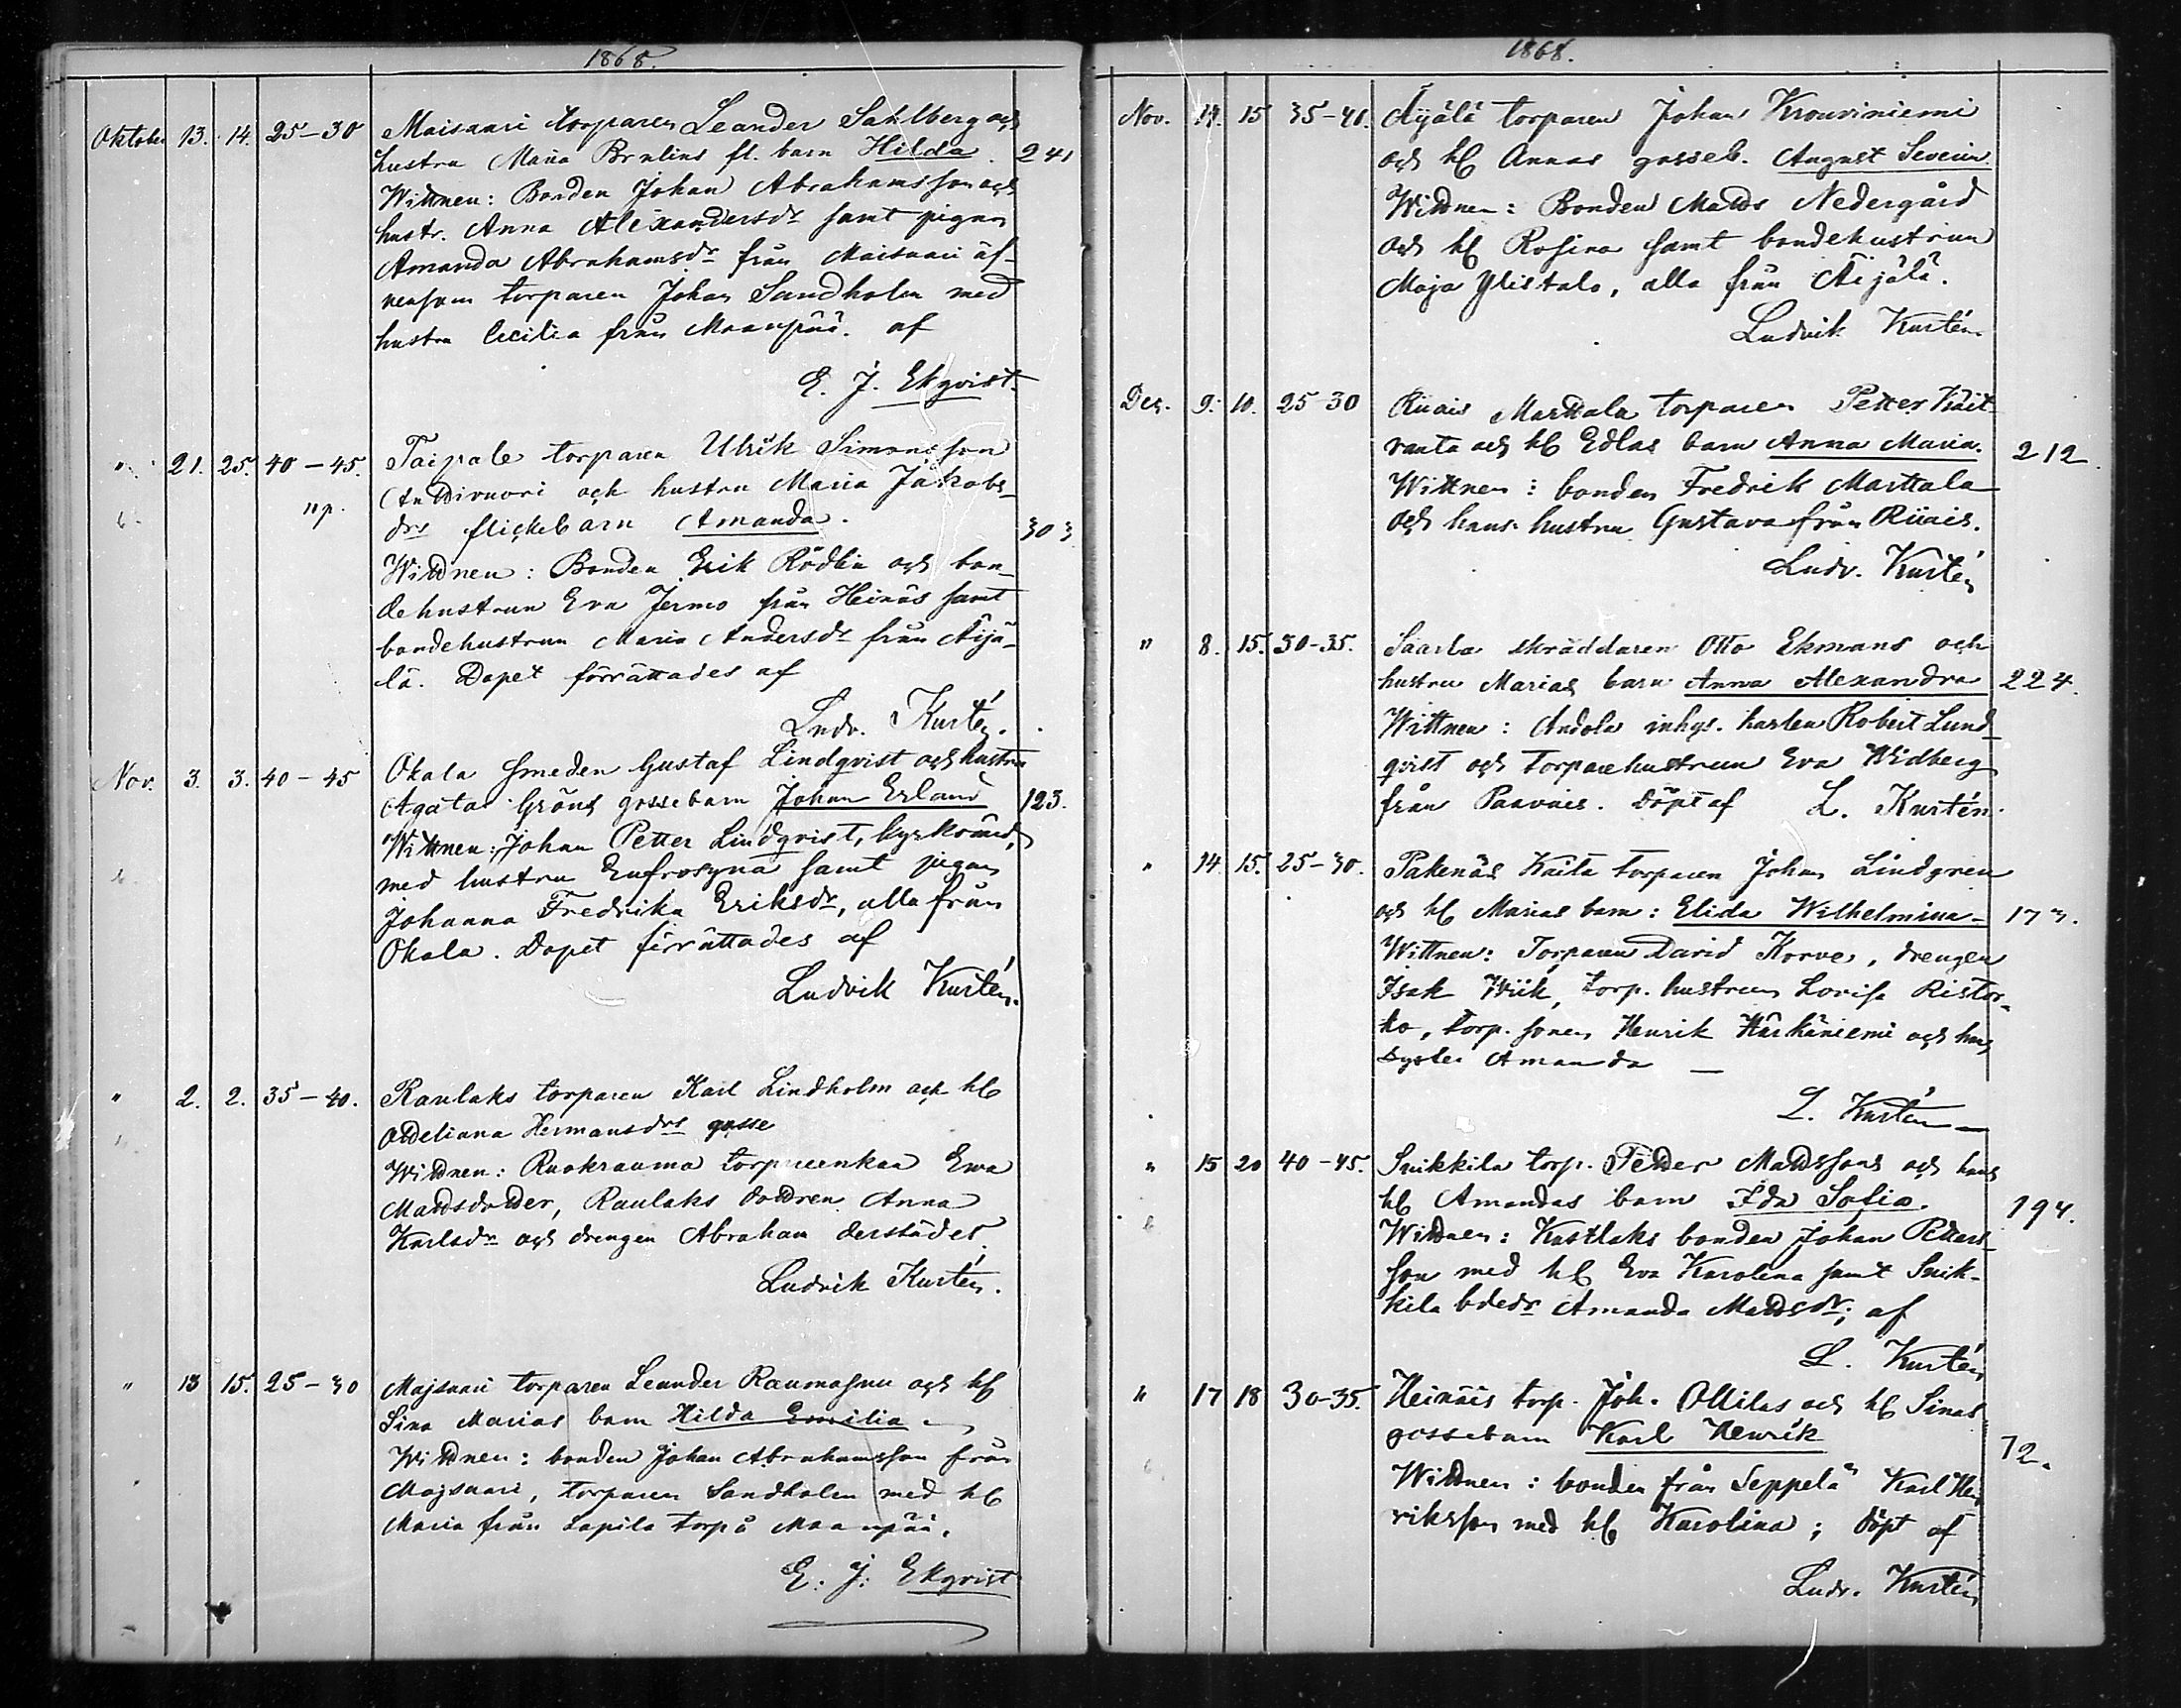 1868.
Oktober 13. 14. 25-30 Maisaari torparen Leander Sahlberg och
hustru Maria Brulins fl. barn Hilda. 241
Wittnen: Bonden Johan Abrahamsson och
hustr. Anna Alexandersdr samt pigan
Amanda Abrahamsdr från Maisaari äf-
vensom torparen Johan Sandholm med
hustru Cecilia från Maanpää. af
E. J. Ekqvist.
" 21. 25. 40-45. Taipale torparen Ulrik Simonsson
Anttivuori och hustru Maria Jakobs-
drs flickebarn Amanda. 303
Wittnen: Bonden Erik Rödlin och bon-
dehustrun Eva Jermo från Heinäs samt
bondehustrun Maria Andersdr från Äijä-
lä. Dopet förrättades af
Ludv. Kurtén.
Nov. 3. 3. 40-45 Okala smeden Gustaf Lindqvist och hustru
Agata Gröns gossebarn Johan Erland 123.
Wittnen: Johan Petter Lindqvist,
med hustru Eufrosyna samt pigan
Johanna Fredrika Eriksdr, alla från
Okala. Dopet förrättades af
Ludvik Kurtén.
" 2. 2. 35-40. Raulaks torparen Karl Lindholm och hb
Adeliana Hermansdrs gosse
Wittnen: Ruokrauma torpareenkan Ewa
Mattsdotter, Raulaks dottren Anna
Karlsdr och drengen Abraham derstädes
Ludvik Kurtén.
" 13 15. 25-30 Majsaari torparen Leander Raumasuu och hb
Sina Marias barn Hilda Emilia
Wittnen: bonden Johan Abrahamsson från
Majsaari, torparen Sandholm med hb
Maria från Lapila torp å Maanpää.
E. J. Ekqvist
1868.
Nov. 14. 15 35-40. Äyälä torparen Johan Krouviniemi
och hb Annas gosseb. August Severin.
Wittnen: Bonden Matts Nedergård
och hb Rosina samt bondehustrun
Maja Ylistalo, alla från Äijälä.
Ludvik Kurtén.
Dec. 9. 10. 25-30 Riiais Marttala torparen Petter Kait-
ranta och hb Edlas barn Anna Maria. 212.
Wittnen: bonden Fredrik Marttala
och hans hustru Gustava från Riiais.
Ludv. Kurtén
" 8. 15. 30-35. Saarla skräddaren Otto Ekmans och
hustru Marias barn Anna Alexandra 224.
Wittnen: Andola inhys. karlen Robert Lund-
qvist och torparehustrun Eva Widberg
från Paavais. Döpt af L. Kurtén.
" 14 15. 25-30. Pakenäs Kaita torparen Johan Lindgren
och hb Marias barn: Elida Wilhelmina- 173.
Wittnen: Torparen David Korve, drengen
Isak Wiik, torp. hustrun Lovisa Ristor-
ko, torp. sonen Henrik Härkäniemi och hans
syster Amanda —
L. Kurtén —
" 15 20 40-45. Suikkila torp. Petter Mattssons och hans
hb Amandas barn Ida Sofia. 194.
Wittnen: Kustlaks bonden Johan Petters-
son med hb Eva Karolina samt Suik-
kila bdedr Amanda Mattsdr; af
L. Kurtén
" 17 18 30-35. Heinäis torp. Joh. Ollilas och hb Sinas
gossebarn Karl Henrik 72.
Wittnen: bonden från Seppelä Karl Hen-
riksson med hb Karolina; döpt af
Ludv. Kurtén